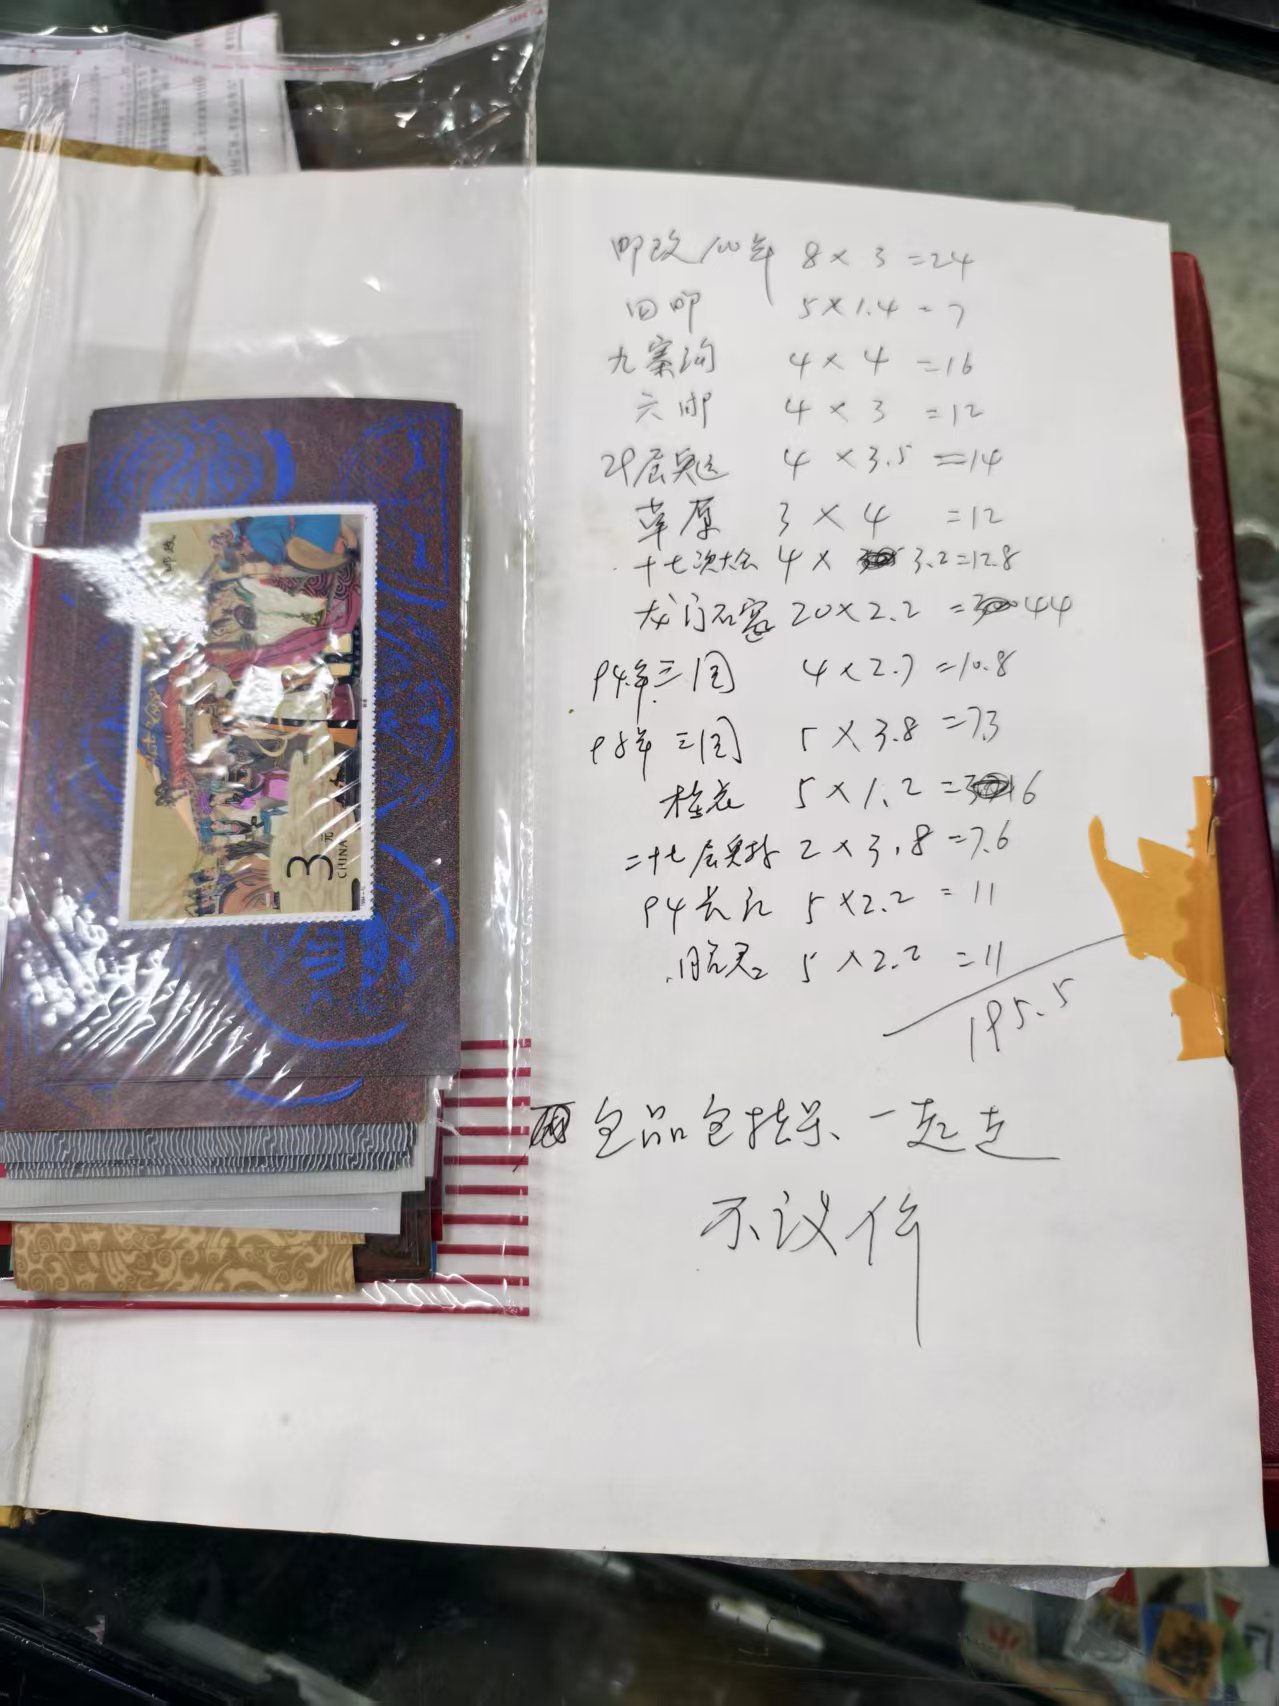 邮政100年 8×3=24
旧邮 5×1.4=7
九寨沟 4×4=16
六邮 4×3=12
4×3.5=14
草原 3×4=12
十七次大会 4× 3.2=12.8
龙门石窟 20×2.2=44
94年三国 4×2.7=10.8
98年三国 5×3.8=7.3
桂花 5×1.2=6
二十七届奥 2×3.8=7.6
94长江 5×2.2=11
5×2.2=11
195.5
全品包挂号、一起走
不议价
3元
CHINA